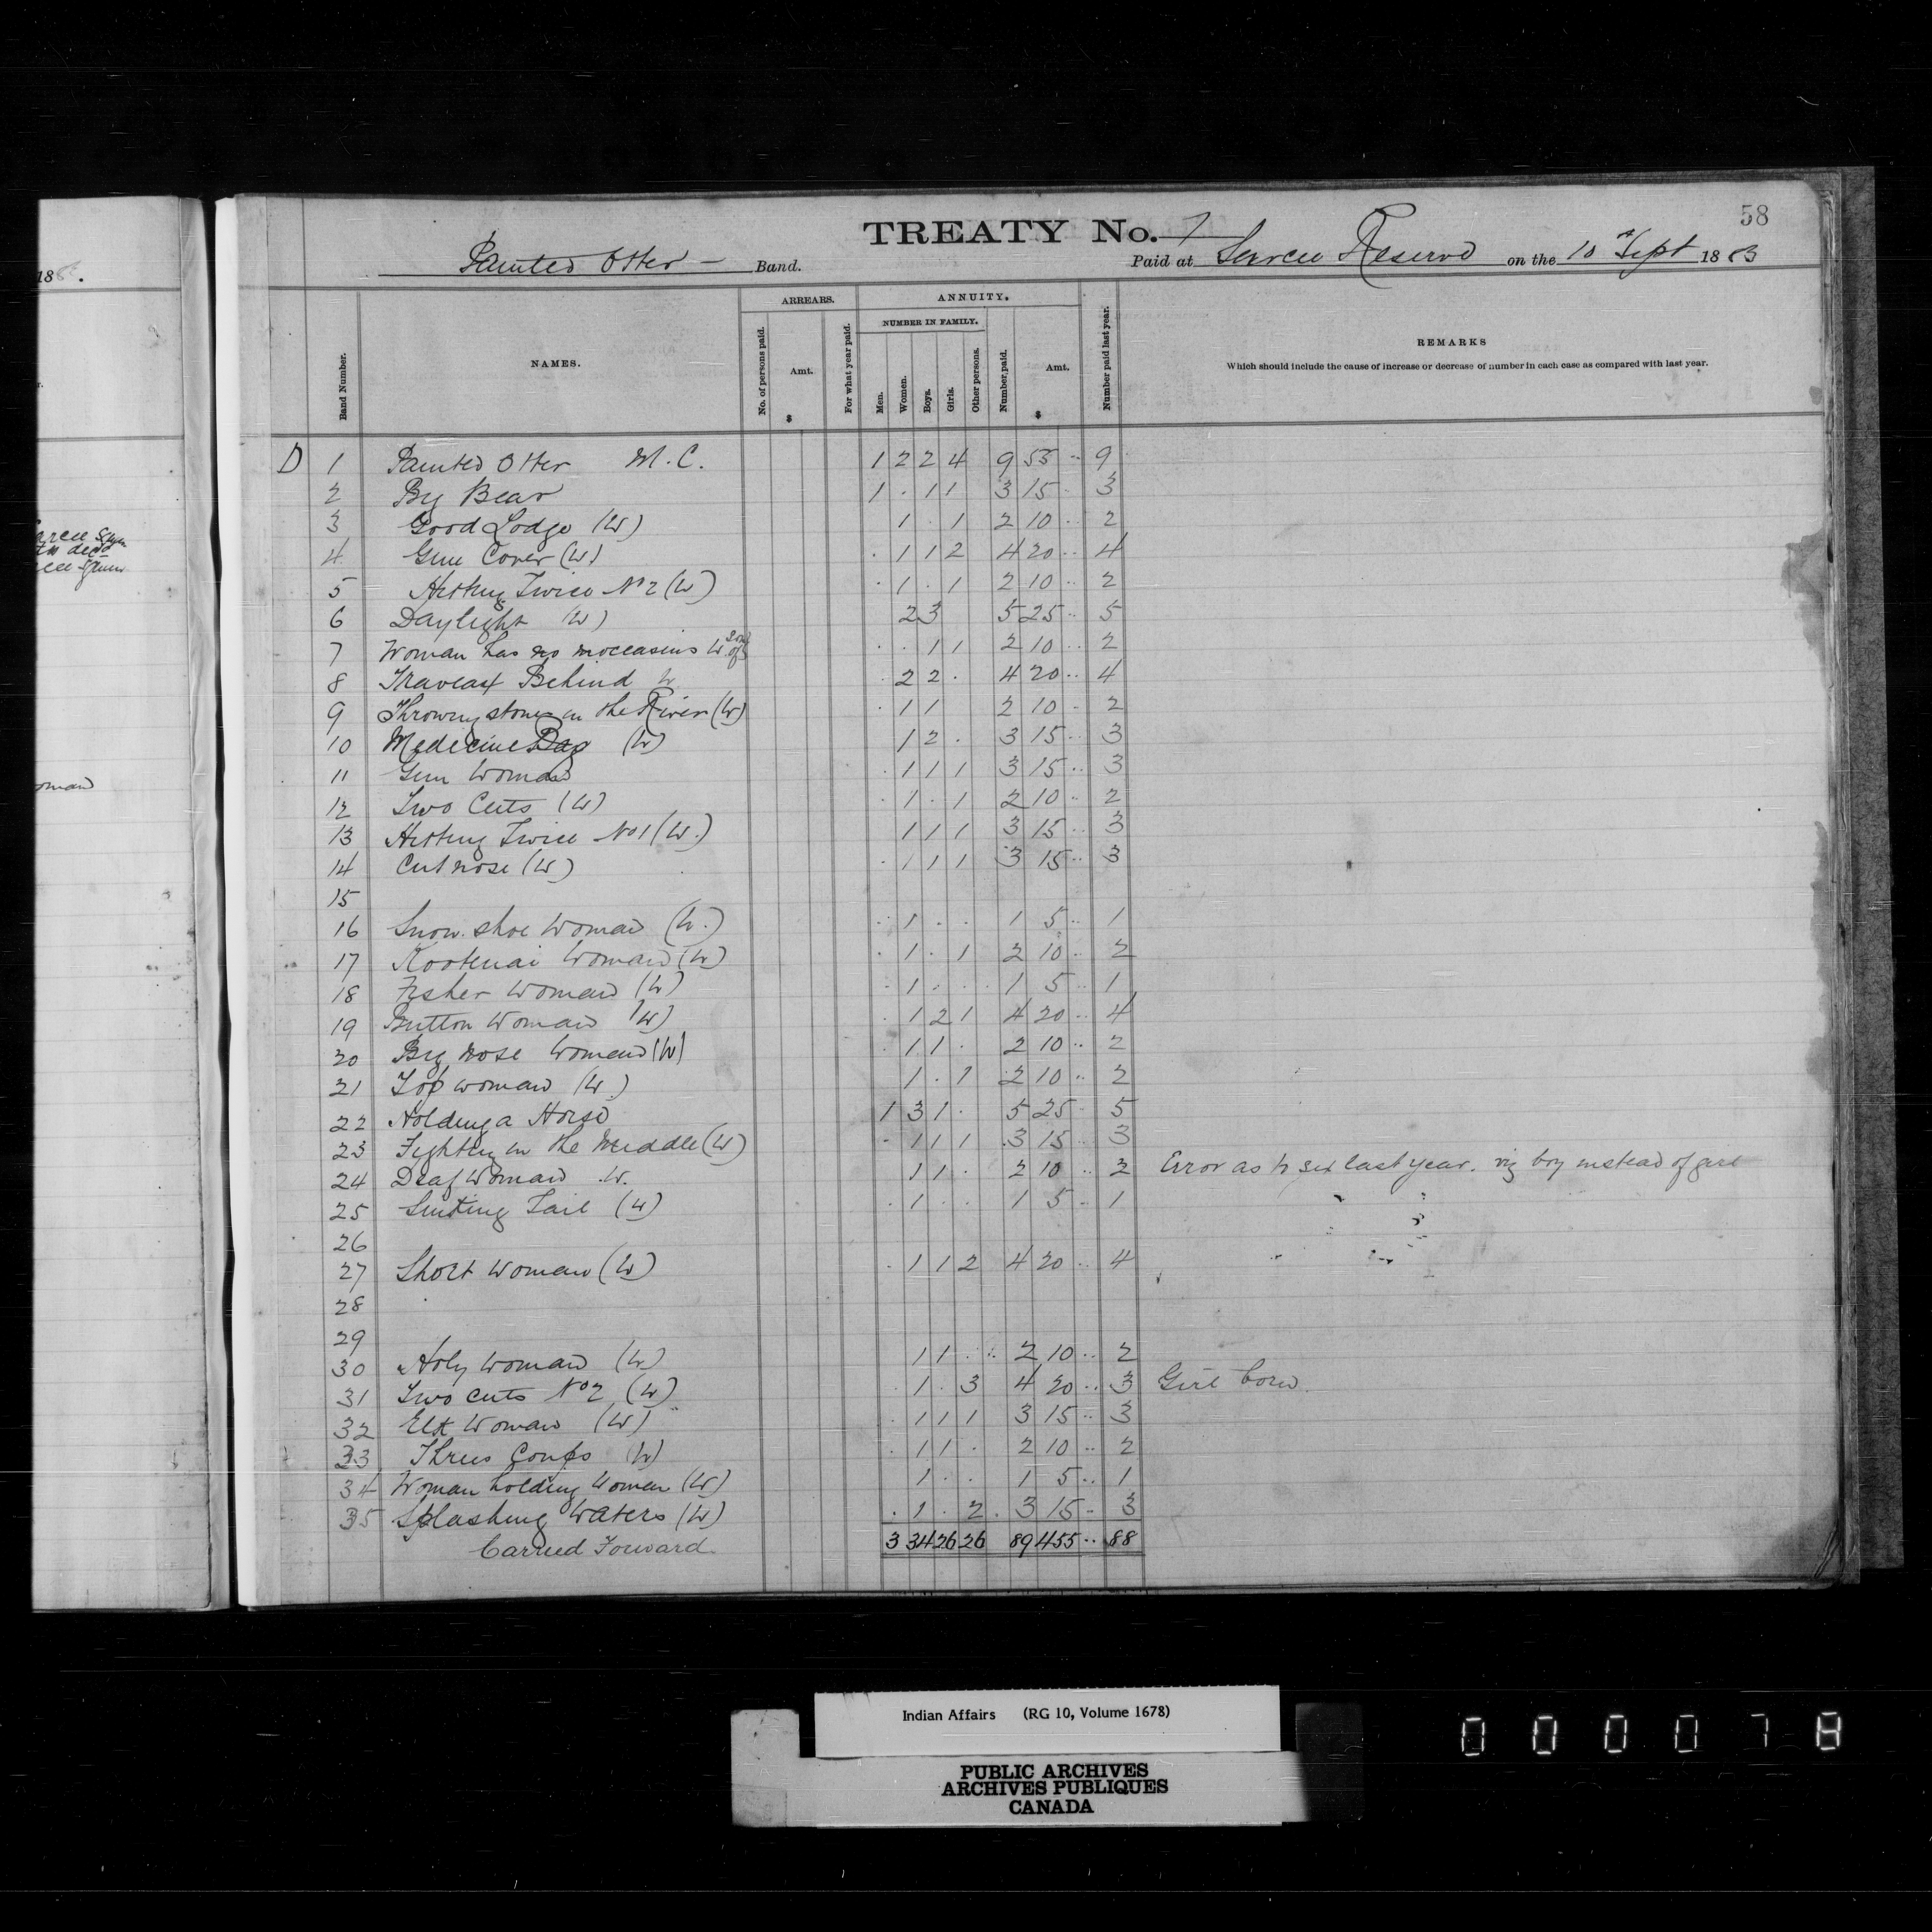 58
TREATY No. 7
Painted Otter — Band. Paid at Sarcee Reserve on the 10th Sept 1883
188 .
Band Number. NAMES. ARREARS. No. of persons paid. Amt. $ For what year paid. ANNUITY. NUMBER IN FAMILY. Men. Women. Boys. Girls. Other persons. Number paid. Amt. $ Number paid last year. REMARKS
Which should include the cause of increase or decrease of number in each case as compared with last year.
D 1 Painted Otter M.C. 1 2 2 4 9 55 .. 9
2 Big Bear 1 . 1 1 3 15 . 3
3 Good Lodge (W) 1 . 1 2 10 .. 2
4 Gun Cover (W) . 1 1 2 4 20 .. 4
5 Hitting Twice No 2 (W) . 1 . 1 2 10 .. 2
6 Daylight (W) 2 3 5 25 .. 5
7 Woman has no moccasins W. Sons of . . 1 1 2 10 .. 2
8 Traveax Behind W . 2 2 . 4 20 .. 4
9 Throwing stones in the River (W) . 1 1 2 10 - 2
10 Medecine Bag (W) 1 2 . 3 15 .. 3
11 Gun Woman . 1 1 1 3 15 .. 3
12 Two Cuts (W) . 1 . 1 2 10 .. 2
13 Hitting Twice No 1 (W.) 1 1 1 3 15 .. 3
14 Cut nose (W) . 1 1 1 3 15 .. 3
15
16 Snow shoe Woman (W.) . 1 . . 1 5 .. 1
17 Kootenai Woman (W) . 1 . 1 2 10 .. 2
18 Fisher Woman (W) . 1 . . 1 5 .. 1
19 Button Woman (W) . 1 2 1 4 20 .. 4
20 Big nose Woman (W) . 1 1 . 2 10 .. 2
21 Top woman (W.) 1 . 1 2 10 .. 2
22 Holding a Horse 1 3 1 . 5 25 . 5
23 Fighting in the Middle (W) . 1 1 1 3 15 .. 3
24 Deaf Woman W. 1 1 . 2 10 .. 2 Error as to sex last year. viz boy instead of girl
25 Tail (W) . 1 . . 1 5 .. 1
26
27 Short Woman (W) . 1 1 2 4 20 .. 4
28
29
30 Holy Woman (W) 1 1 . 2 10 .. 2
31 Two cuts No 2 (W) . 1 . 3 4 20 .. 3 Girl born.
32 Elk Woman (W) . 1 1 1 3 15 .. 3
33 Three Coups (W) . 1 1 . 2 10 .. 2
34 Woman holding Women (W) 1 . . 1 5 .. 1
35 Splashing Waters (W) . 1 . 2 . 3 15 - 3
Carried Forward 3 34 26 26 89 455 .. 88
Indian Affairs (RG 10, Volume 1678)
PUBLIC ARCHIVES
ARCHIVES PUBLIQUES
CANADA
0 0 0 0 7 8